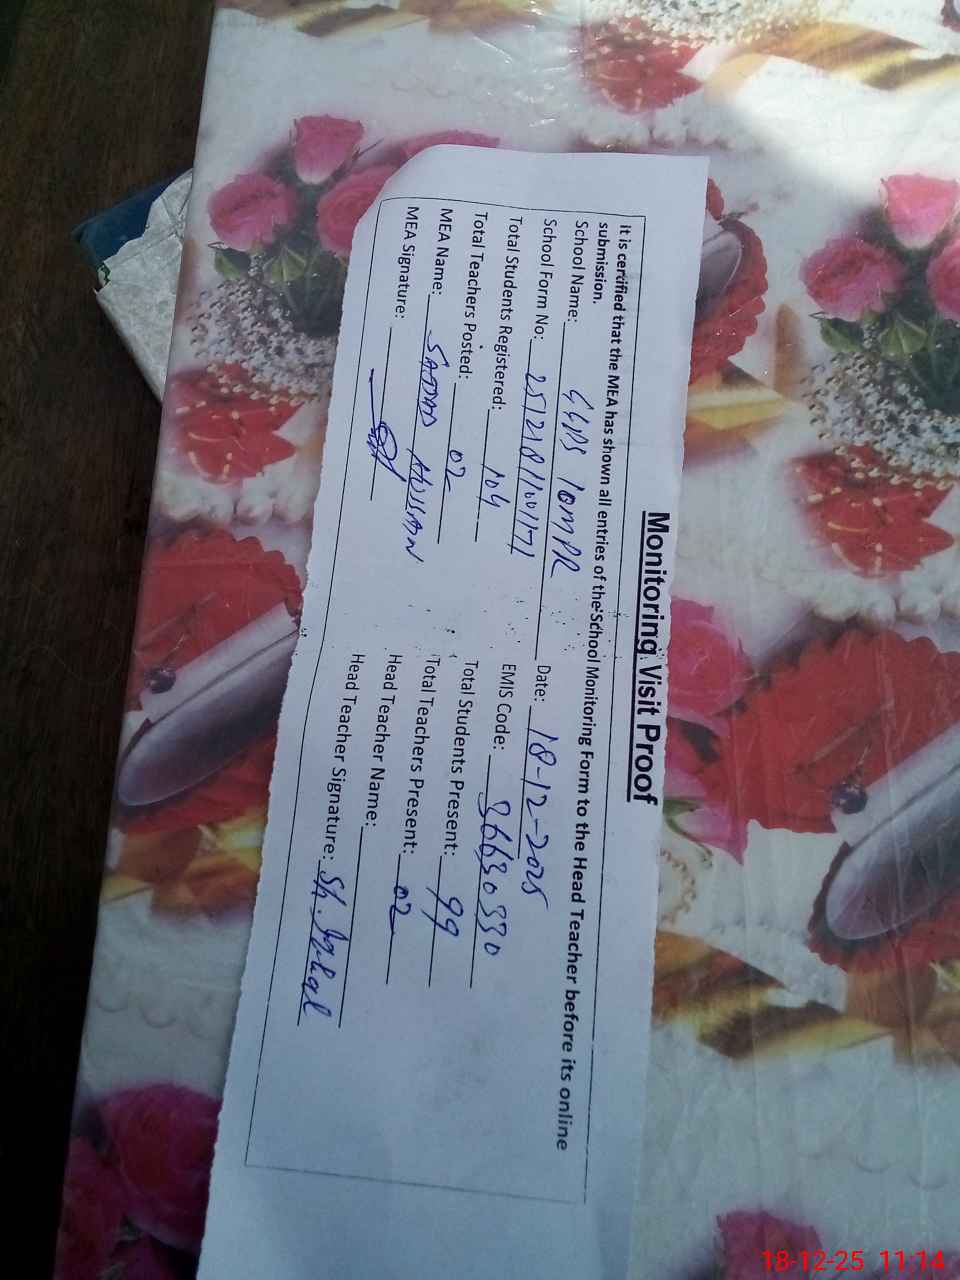 Monitoring Visit Proof
It is certified that the MEA has shown all entries of the School Monitoring Form to the Head Teacher before its online
submission.
School Name: GGPS 10MPR Date: 18-12-2025
School Form No: EMIS Code: 36630330
Total Students Registered: 104 Total Students Present: 99
Total Teachers Posted: 02 Total Teachers Present: 02
MEA Name: SAJJAD HUSSAIN Head Teacher Name:
MEA Signature: Head Teacher Signature: Sh. Iqbal
18-12-25 11:14